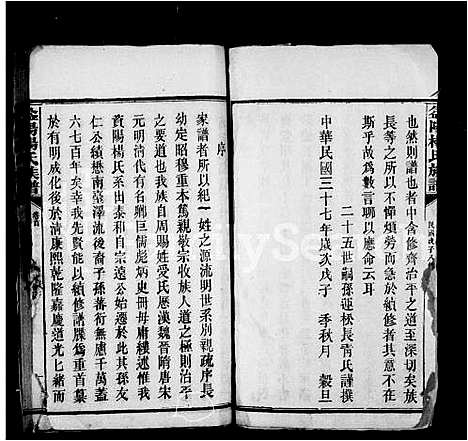 也然則譜也者中含修齊治平之道至深切矣族
長等之所以不憚煩勞而急於續修者其意不在
斯乎故為數言聊以應命云耳
二十五世嗣孫蓮松長青氏謹撰
中華民國三十七年歲次戊子 季秋月 穀旦
序
家譜者所以紀一姓之源流明世系別親疏序長
幼定昭穆重本篤親敬宗收族人道之極則治平
之大道也我族自周賜姓受氏歷漢魏晉隋唐宋
元明清代有鄉巨儒彪炳史冊毋庸縷述惟我
資陽楊氏系出泰和自宗遠公始遷於此其孫友
仁公績懋南臺澤流後裔子孫蕃衍無慮千萬蓋
六七百年矣幸我先賢能以績修譜牒為重首纂
於有明成化後於清康熙乾隆嘉慶道光上緒而
楊氏族譜
卷首